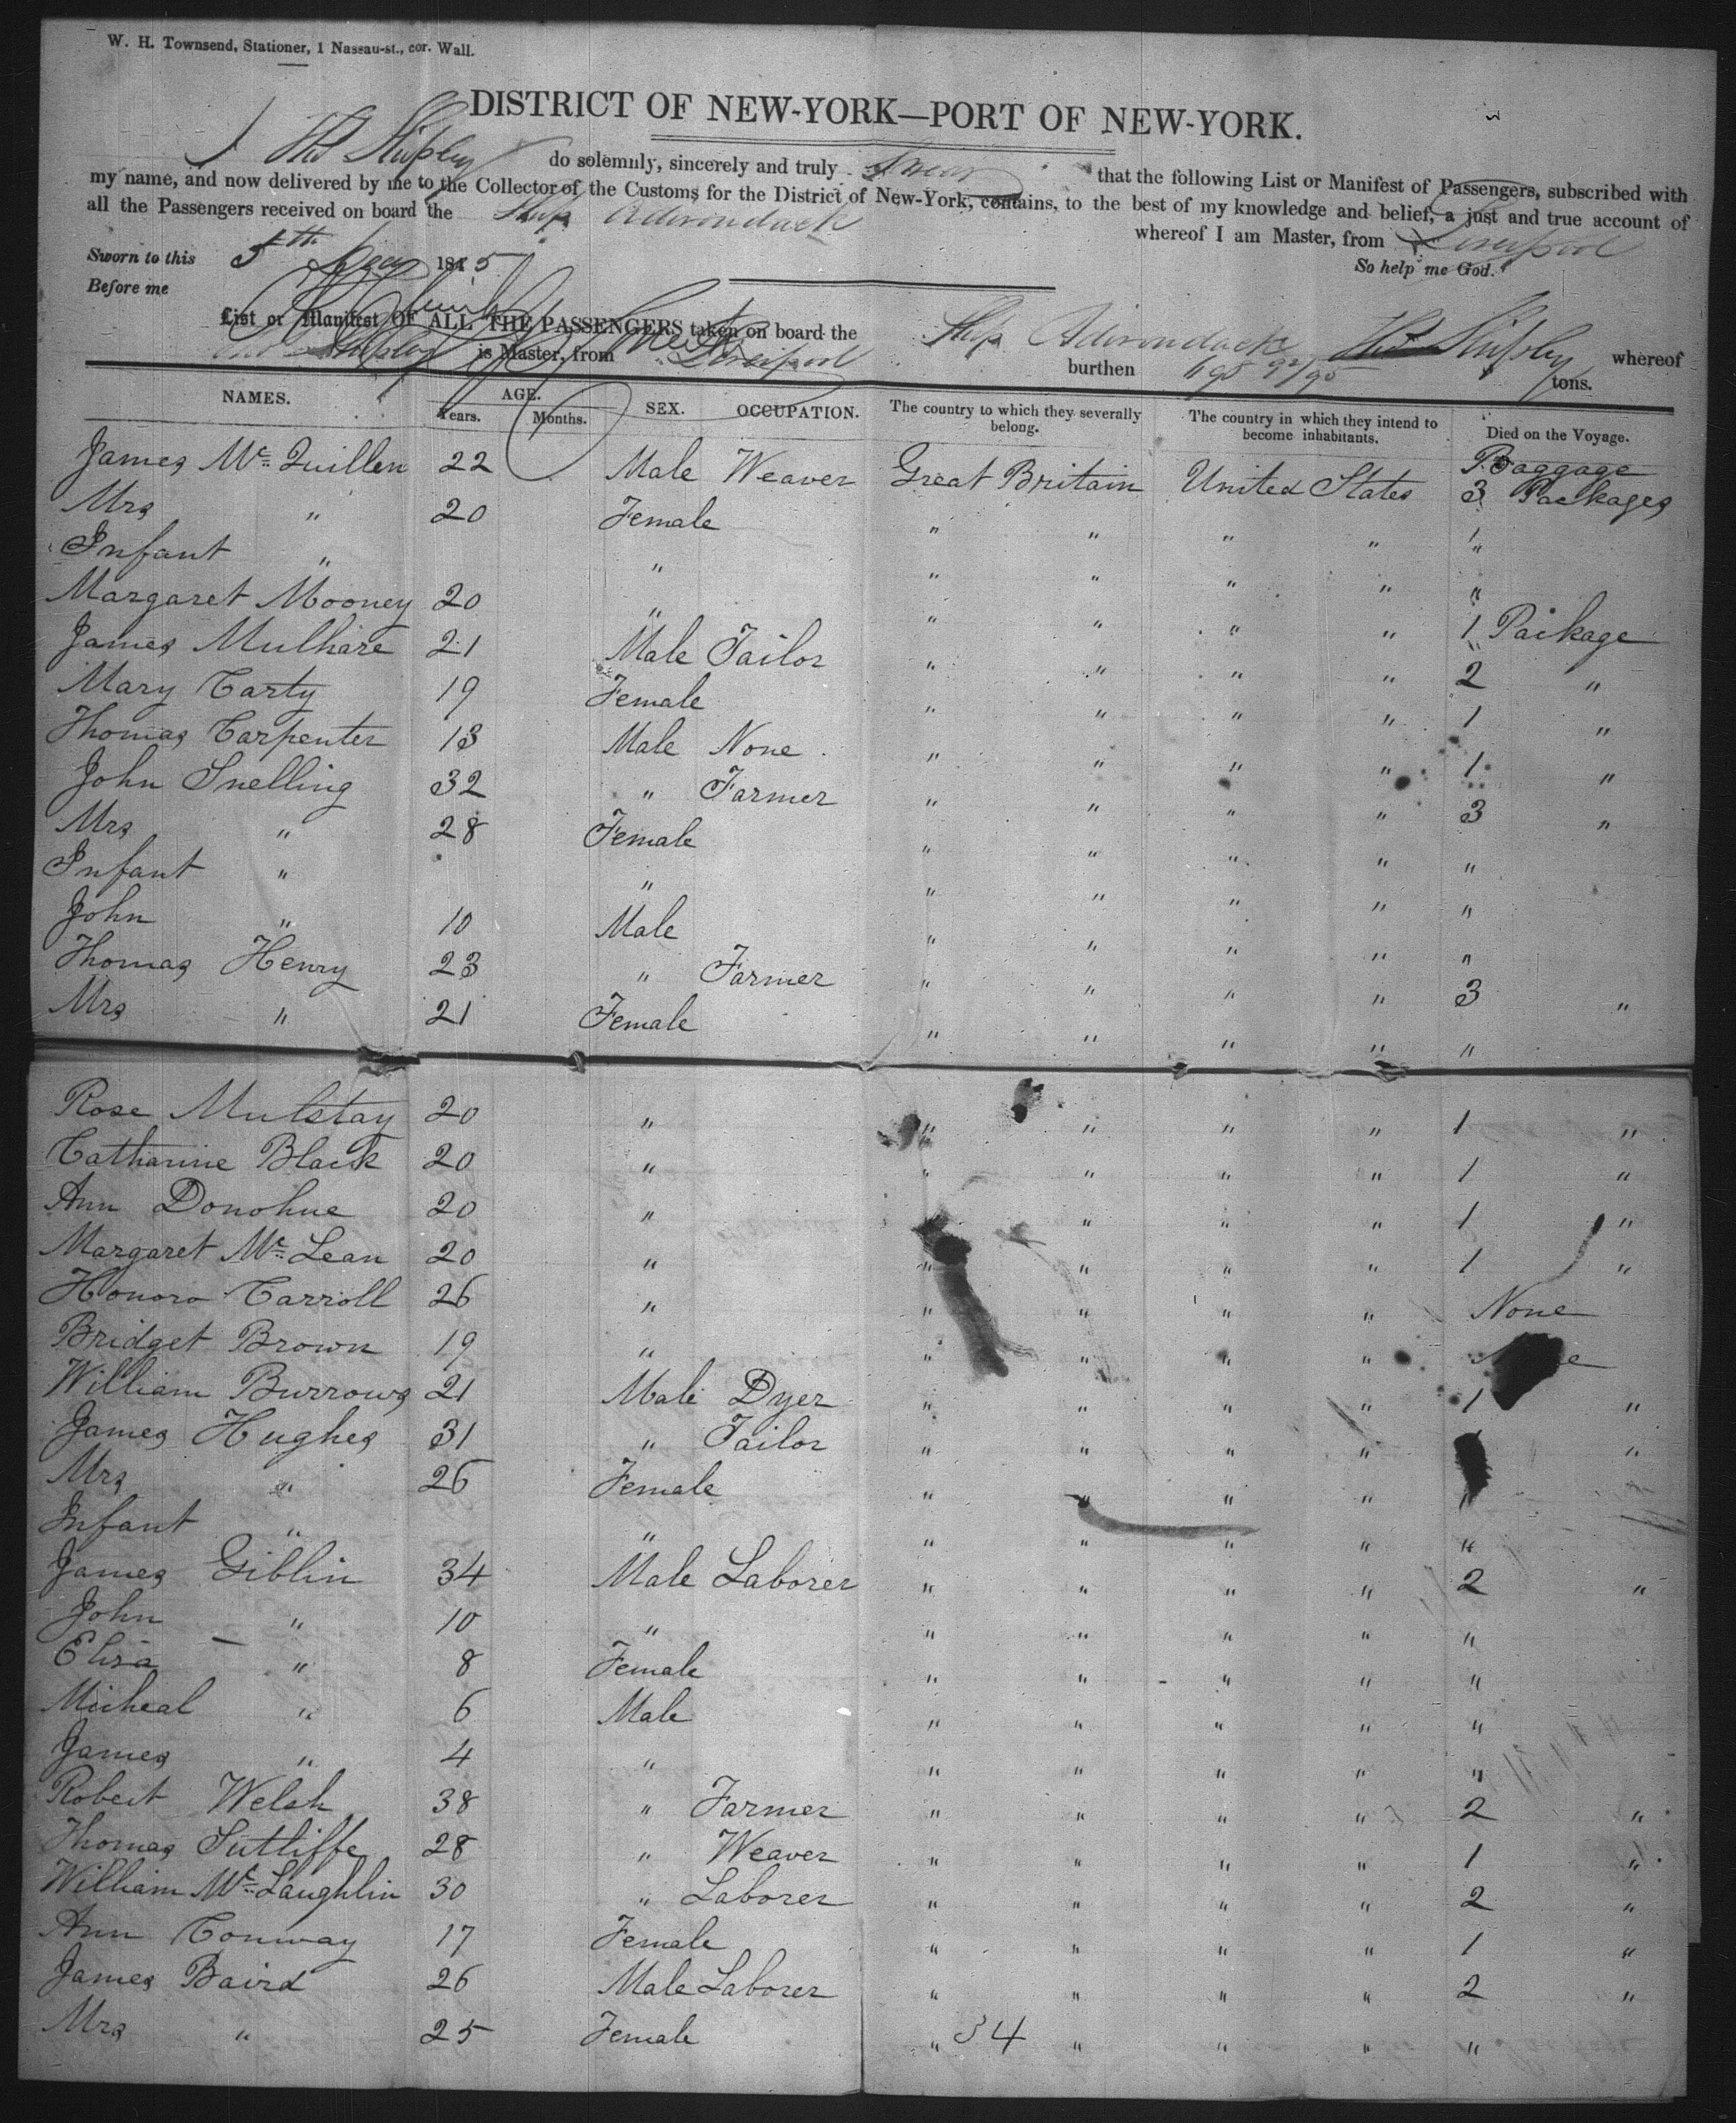 W. H. Townsend, Stationer, 1 Nassau-st., cor. Wall.
DISTRICT OF NEW-YORK—PORT OF NEW-YORK.
I Thos Shipley do solemnly, sincerely and truly Swear that the following List or Manifest of Passengers, subscribed with
my name, and now delivered by me to the Collector of the Customs for the District of New-York, contains, to the best of my knowledge and belief, a just and true account of
all the Passengers received on board the Ship Adirondack whereof I am Master, from Liverpool
Sworn to this 5th 1845 So help me God.
Before me
List or Manifest OF ALL THE PASSENGERS taken on board the Ship Adirondack whereof
Thos Shipley is Master, from Liverpool burthen 695 92/95 tons.
Thos Shipley
NAMES. AGE. SEX. OCCUPATION. The country to which they severally belong. The country in which they intend to become inhabitants. Died on the Voyage.
Years. Months.
Baggage
James Mc Quillen 22 Male Weaver Great Britain United States 3 Packages
Mrs " 20 Female " " " " "
Infant " " " " " " "
Margaret Mooney 20 " " " " " 1 Package
James Mulhare 21 Male Tailor " " " " 2 "
Mary Carty 19 Female " " " " 1 "
Thomas Carpenter 13 Male None " " " " 1 "
John Snelling 32 " Farmer " " " " 3 "
Mrs " 28 Female " " " " "
Infant " " " " " " "
John " 10 Male " " " " "
Thomas Henry 23 " Farmer " " " " 3 "
Mrs " 21 Female " " " " "
Rose Mulstay 20 " " " " " 1 "
Catharine Black 20 " " " " " 1 "
Ann Donohue 20 " " " " " 1 "
Margaret Mc Lean 20 " " " " " 1 "
Honora Carroll 26 " " " " " None
Bridget Brown 19 " " " " " None
William Burrows 21 Male Dyer " " " " 1 "
James Hughes 31 " Tailor " " " " "
Mrs " 26 Female " " " " "
Infant " " " " " " "
James Giblin 34 Male Laborer " " " " 2 "
John " 10 " " " " " "
Eliza " 8 Female " " " " "
Micheal " 6 Male " " " " "
James " 4 " " " " " "
Robert Welsh 38 " Farmer " " " " 2 "
Thomas Sutliffe 28 " Weaver " " " " 1 "
William Mc Laughlin 30 " Laborer " " " " 2 "
Ann Conway 17 Female " " " " 1 "
James Baird 26 Male Laborer " " " " 2 "
Mrs " 25 Female " 34 " " " "